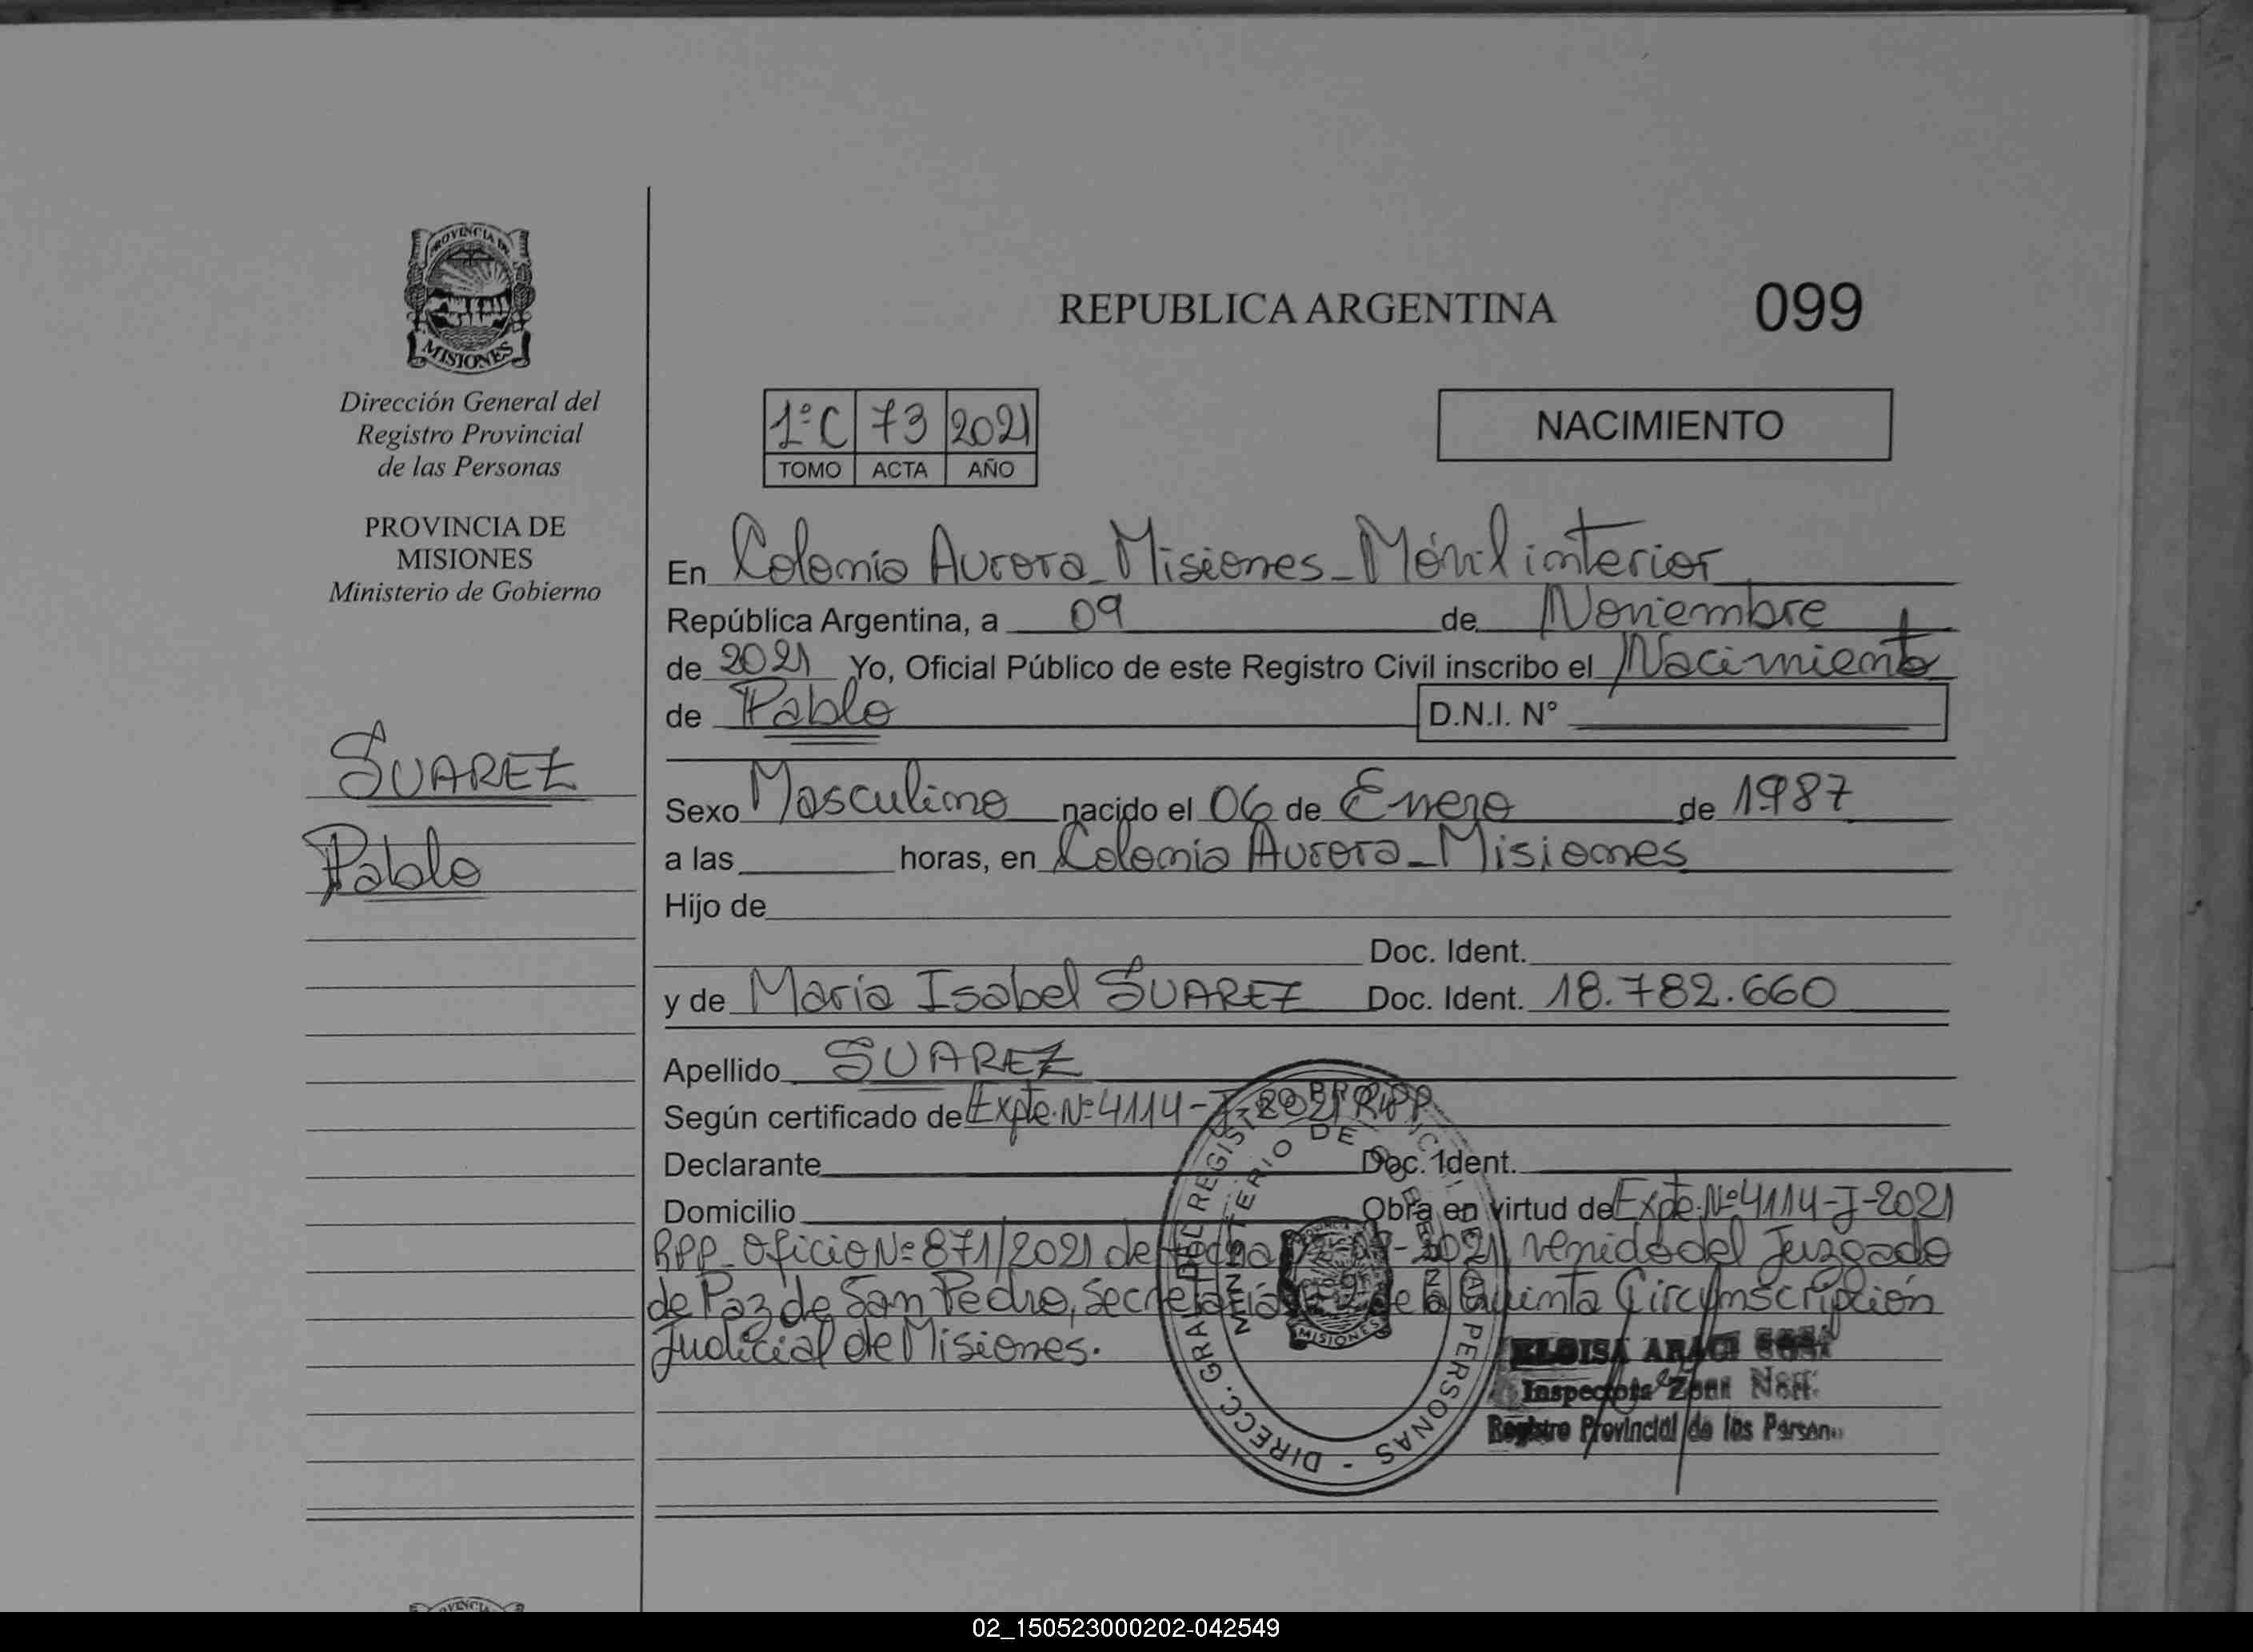 PROVINCIA DE
MISIONES
Dirección General del
Registro Provincial
de las Personas
PROVINCIA DE
MISIONES
Ministerio de Gobierno
SUAREZ
Pablo
REPUBLICA ARGENTINA
099
1º C 73 2021
TOMO ACTA AÑO
NACIMIENTO
En Colonia Aurora - Misiones - Móvil interior
República Argentina, a 09 de Noviembre
de 2021 Yo, Oficial Público de este Registro Civil inscribo el Nacimiento
de Pablo D.N.I. Nº
Sexo Masculino nacido el 06 de Enero de 1987
a las horas, en Colonia Aurora - Misiones
Hijo de
Doc. Ident.
y de Maria Isabel SUAREZ Doc. Ident. 18.782.660
Apellido SUAREZ
Según certificado de Expte. Nº 4114-J-2021 RPP
Declarante Doc. Ident.
Domicilio Obra en virtud de Expte. Nº 4114-J-2021
RPP - Oficio Nº 871/2021 de fecha 2021 venido del Juzgado
de Paz de San Pedro, Secretaría de la Quinta Circunscripción
Judicial de Misiones.
DIRECC. GRAL. DEL REGISTRO PROVINCIAL DE LAS PERSONAS -
MINISTERIO DE GOBIERNO
MISIONES
ELOISA ARACI
Inspectora Zona
Registro Provincial de las Person
02_150523000202-042549